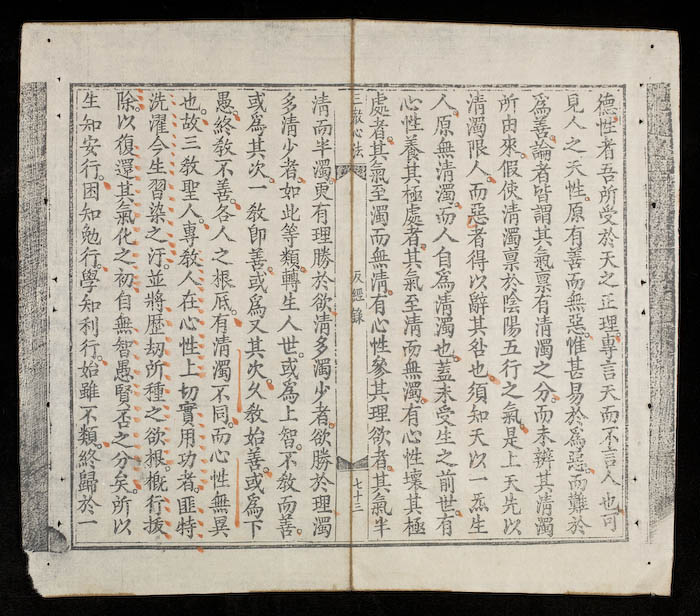 德性者吾所受於天之正理專言天而不言人也可
見人之天性原有善而無惡惟甚易於為惡而難於
為善論者皆謂其氣禀有清濁之分而未辨其清濁
所由來假使清濁禀於陰陽五行之氣是上天先以
清濁限人而惡者得以辭其咎也須知天以一炁生
人原無清濁而人自為清濁也蓋未受生之前世有
心性養其極處者其氣至清而無濁有心性壞其極
處者其氣至濁而無清有心性參其理欲者其氣半
三教心法 反經錄 七十三
清而半濁更有理勝於欲清多濁少者欲勝於理濁
多清少者如此等類轉生人世或為上智不教而善
或為其次一教卽善或為又其次久教始善或為下
愚終教不善各人之根底有清濁不同而心性無異
也故三教聖人專教人在心性上切實用功者匪特
洗濯今生習染之汙並將歷劫所種之欲根概行拔
除以復還其氣化之初自無智愚賢否之分矣所以
生知安行困知勉行學知利行始雖不類終歸於一